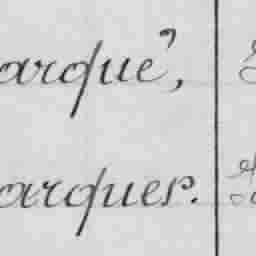 arqué,
arquer.